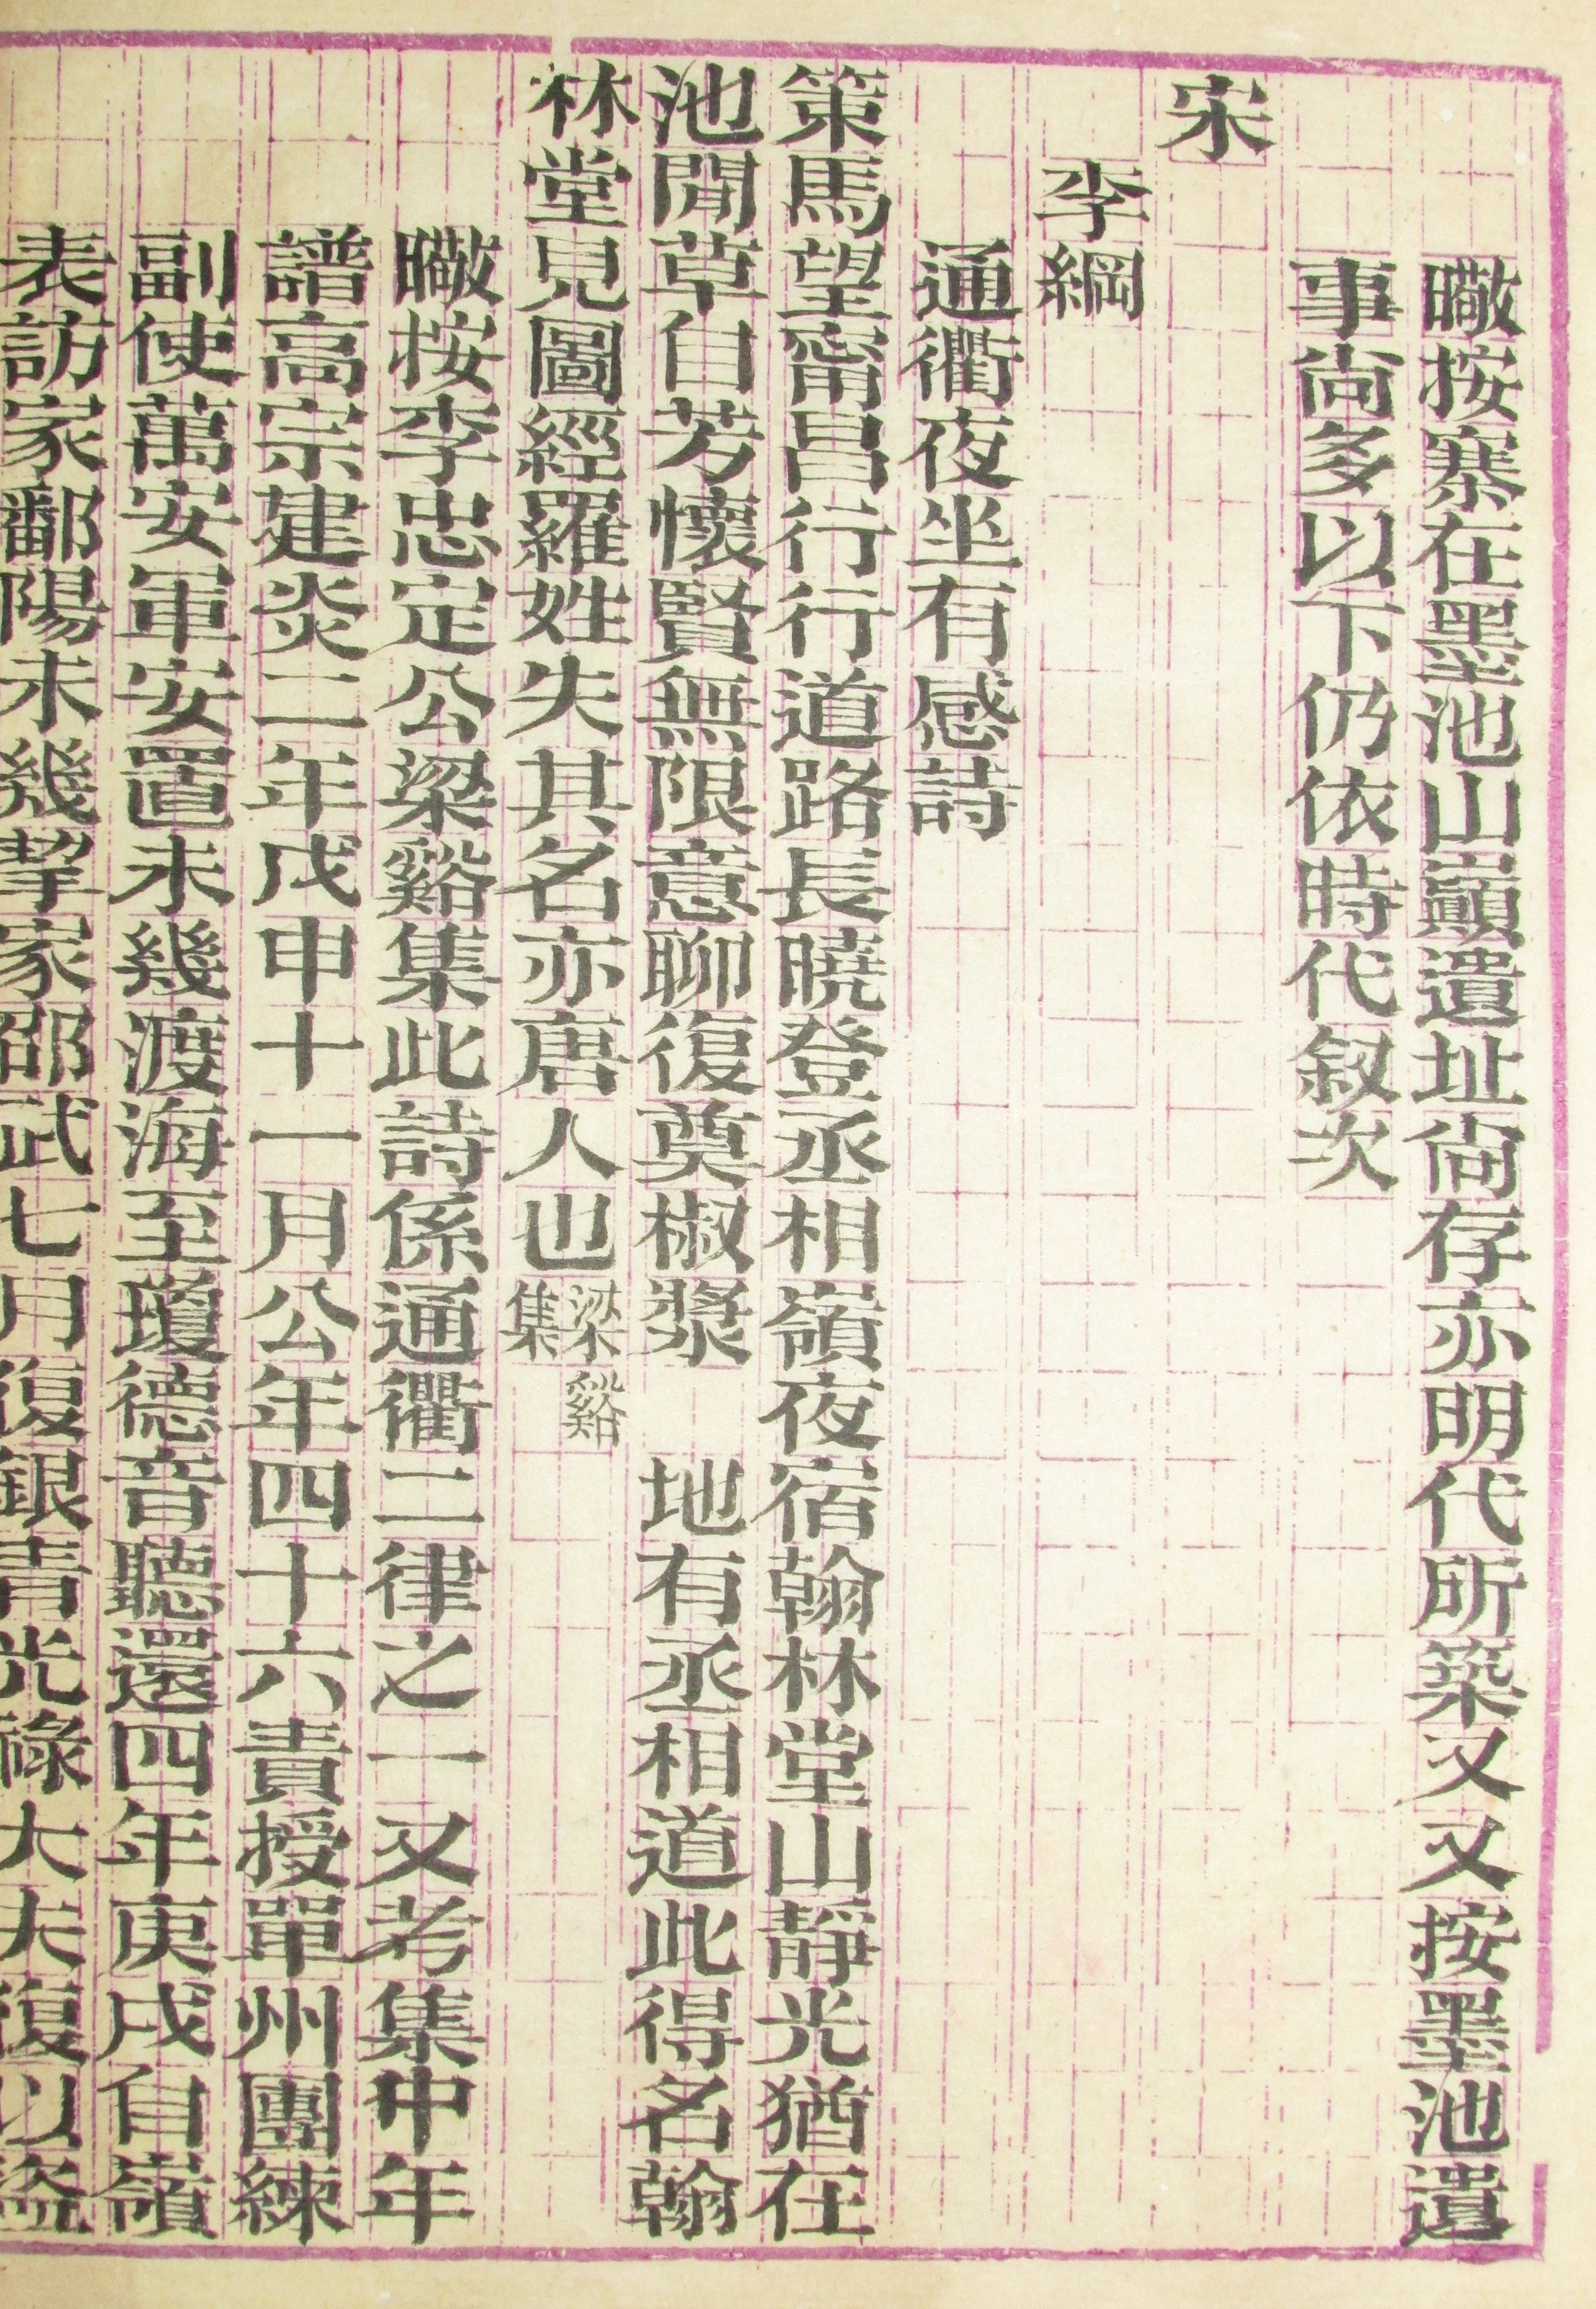 暾按寨在墨池山巔遺址尙存亦明代所築又又按墨池遺
事尙多以下仍依時代叙次
宋
李綱
通衢夜坐有感詩
策馬望甯昌行行道路長曉登丞相嶺夜宿翰林堂山靜光猶在
池閒草自芳懷賢無限意聊復奠椒漿　地有丞相道此得名翰
林堂見圖經羅姓失其名亦唐人也梁谿集
暾按李忠定公梁谿集此詩係通衢二律之一又考集中年
譜高宗建炎二年戊申十一月公年四十六責授單州團練
副使萬安軍安置未幾渡海至瓊德音聽還四年庚戌自嶺
表訪家鄱陽未幾挈家邵武七月復銀青光祿大夫復以盜